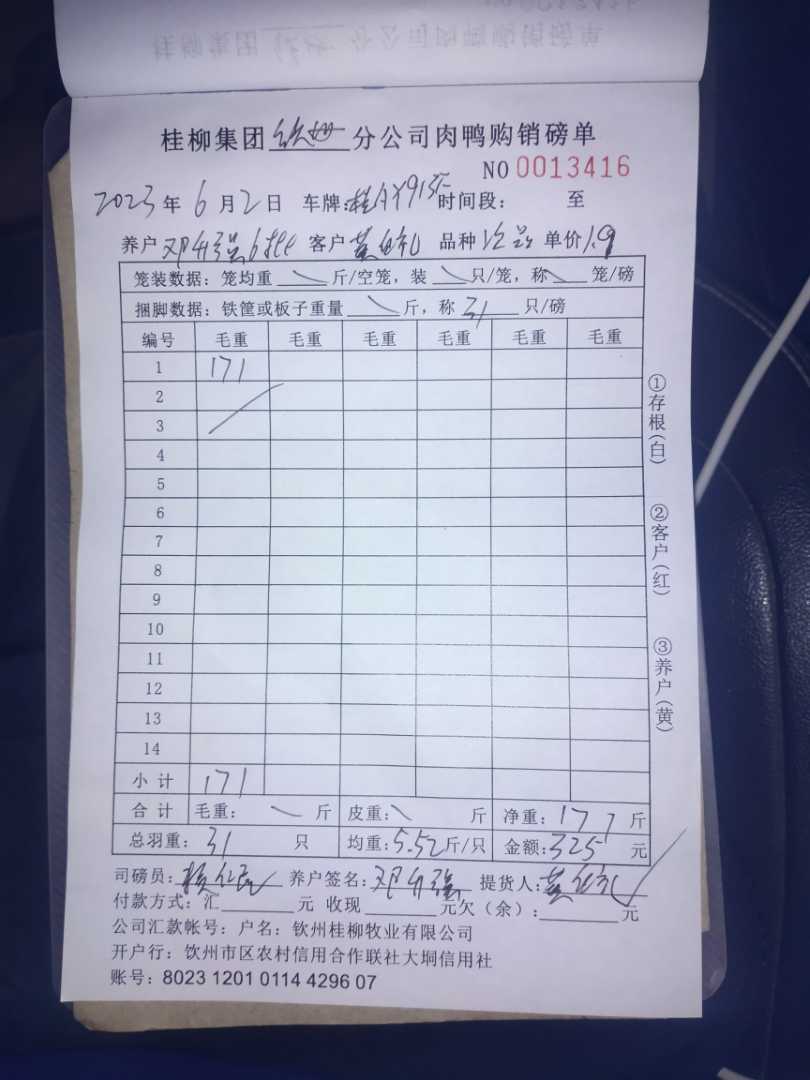 桂柳集团钦州分公司肉鸭购销磅单
NO 0013416
2023年6月2日 车牌:桂 时间段: 至
养户 邓 强6批 客户 黄 品种 次品 单价1.9
笼装数据:笼均重 斤/空笼,装 只/笼,称 笼/磅
捆脚数据:铁筐或板子重量 斤,称31只/磅
编号 毛重 毛重 毛重 毛重 毛重 毛重
1 171
2
3
4
5
6
7
8
9
10
11
12
13
14
小计 171
合计 毛重: 斤 皮重: 斤 净重:171斤
总羽重:31只 均重:5.52斤/只 金额:325元
司磅员: 养户签名:邓 强 提货人:黄
付款方式:汇 元 收现 元欠(余): 元
公司汇款帐号:户名:钦州桂柳牧业有限公司
开户行:钦州市区农村信用合作联社大垌信用社
账号:8023 1201 0114 4296 07
①存根(白)
②客户(红)
③养户(黄)